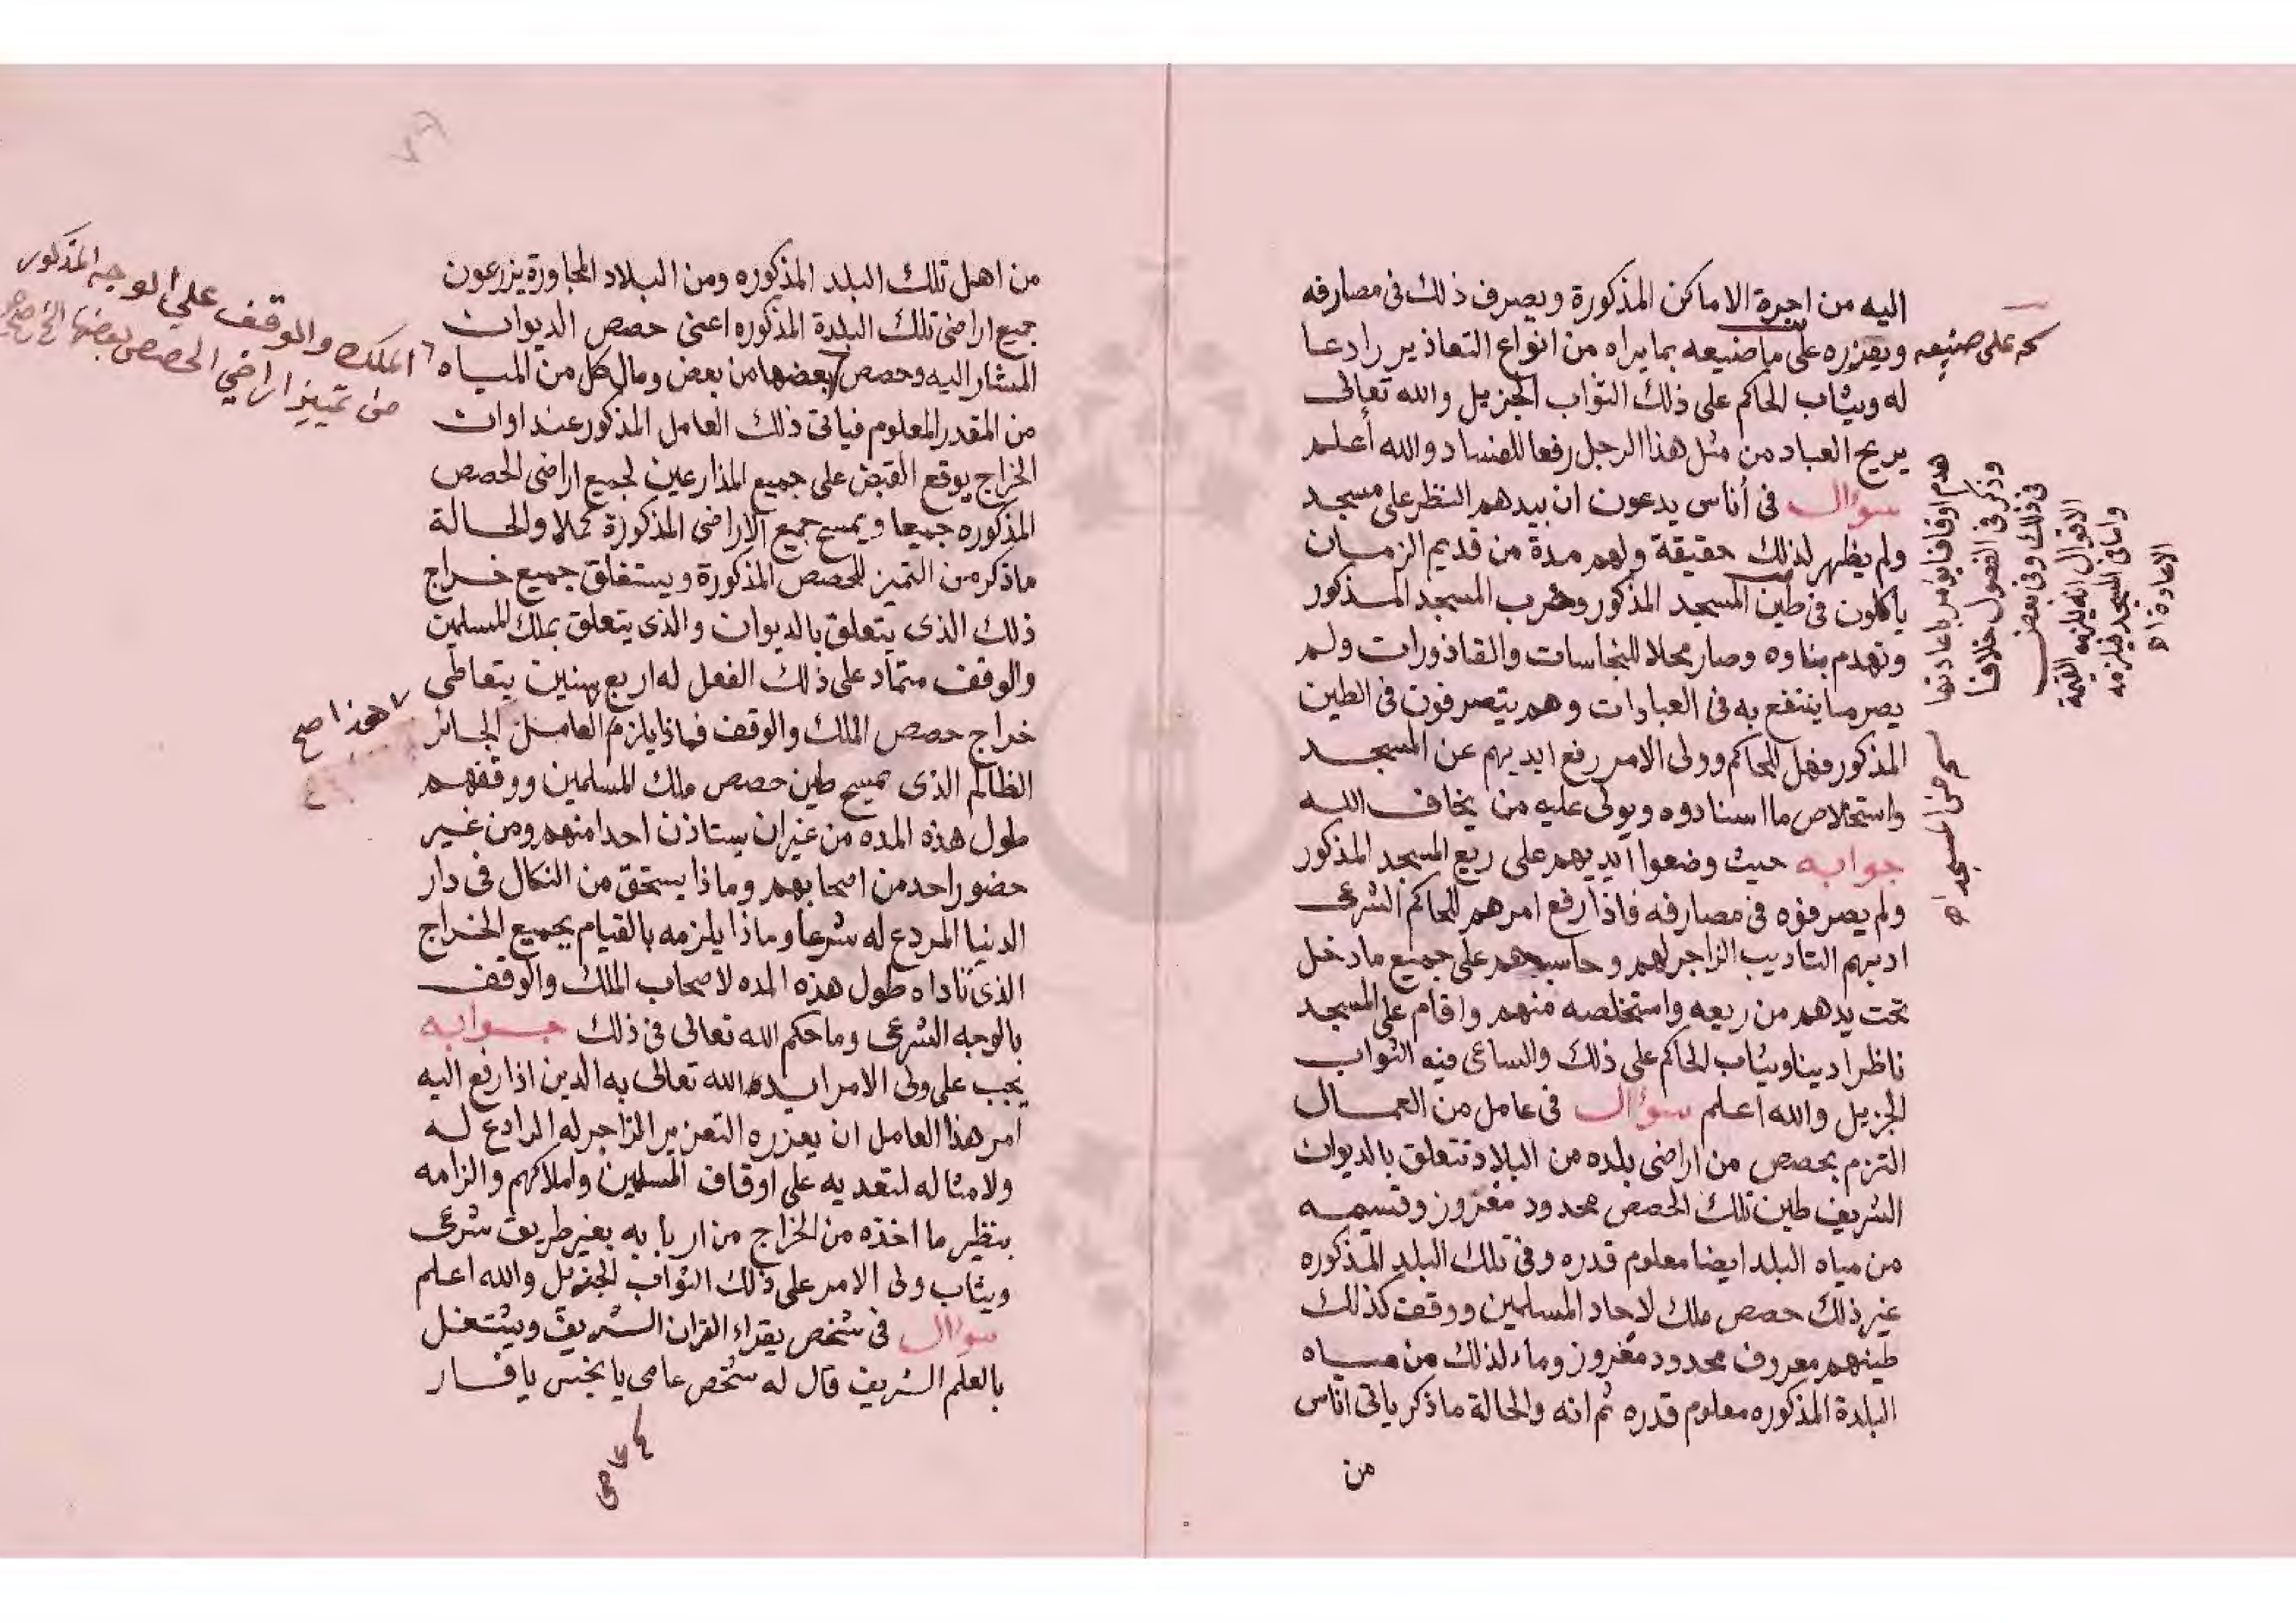 اليه من اجرة الاماكن المذكورة ويصرف ذلك فى مصارفه
ويعزره على ما صنيعه بما يراه من انواع التعاذير رادعا
له ويثاب الحاكم على ذلك الثواب الجزيل والله تعالى
يريح العباد من مثل هذا الرجل رفعا للفساد والله أعلم
سؤال فى أناس يدعون ان بيدهم النظر على مسجد
ولم يظهر لذلك حقيقة ولهم مدة من قديم الزمان
ياكلون فى طين المسجد المذكور وخرب المسجد المذكور
وتهدم بناوه وصار محلا للنجاسات والقاذورات ولم
يصر مما ينتفع به فى العبادات وهم يتصرفون فى الطين
المذكور فهل للحاكم وولى الامر رفع ايديهم عن المسجد
واستخلاص ما استادوه ويولى عليه من يخاف الله
جوابه حيث وضعوا ايديهم على ريع المسجد المذكور
ولم يصرفوه فى مصارفه فاذا رفع امرهم للحاكم الشرعى
ادبهم التاديب الزاجر لهم وحاسبهم على جميع ما دخل
تحت يدهم من ريعه واستخلصه منهم واقام على المسجد
ناظرا دينا ويثاب الحاكم على ذلك والساعى فيه الثواب
الجزيل والله اعلم سؤال فى عامل من العمال
التزم بحصص من اراضى بلده من البلاد تتعلق بالديوان
الشريف طين تلك الحصص محدود مفروز وقسيمه
من مياه البلد ايضا معلوم قدره وفى تلك البلد المذكوره
غير ذلك حصص ملك لاحاد المسلمين ووقف كذلك
طينهم معروف محدود مفروز وماء لذلك من مياه
البلدة المذكوره معلوم قدره ثم انه والحالة ما ذكر ياتى اناس
من
على صنيعه
هدم اوقافا يؤمر باعادتها
وذكر فى الفصول خلافا
فى ذلك وفى بعض
الاقوال انه يلزمه القيمة
واما فى المسجد فيلزمه
الاعادة اه
من اهل تلك البلد المذكوره ومن البلاد المجاورة يزرعون
جميع اراضى تلك البلدة المذكوره اعنى حصص الديوان
المشار اليه وحصص بعضها من بعض ومال كل من المياه
من المقدر المعلوم فياتى ذلك العامل المذكور عند اوان
الخراج يوقع القبض على جميع المذارعين لجميع اراضى الحصص
المذكوره جميعا ويمسح جميع الاراضى المذكورة كملا والحالة
ماذكر من التميز للحصص المذكورة ويستغلق جميع خراج
ذلك الذى يتعلق بالديوان والذى يتعلق بملك المسلمين
والوقف متماد على ذلك الفعل له اربع سنين يتعاطى
خراج حصص الملك والوقف فماذا يلزم العامل الجائر
الظالم الذى يمسح طين حصص ملك المسلمين ووقفهم
طول هذه المده من غير ان يستاذن احدا منهم ومن غير
حضور احد من اصحابهم وماذا يستحق من النكال فى دار
الدنيا المردع له شرعا وماذا يلزمه بالقيام بجميع الخراج
الذى تاداه طول هذه المده لاصحاب الملك والوقف
بالوجه الشرعى وما حكم الله تعالى فى ذلك جوابه
يجب على ولى الامر ايده الله تعالى به الدين اذا رفع اليه
امر هذا العامل ان يعزره التعزير الزاجر له الرادع له
ولامثاله لتعديه على اوقاف المسلمين واملاكهم والزامه
بنظير ما اخذه من الخراج من اربابه بغير طريق شرعى
ويثاب ولى الامر على ذلك الثواب الجزيل والله اعلم
سؤال فى شخص يقراء القران الشريف ويشتغل
بالعلم الشريف قال له شخص عامى يا نجس يا فسار
الملك والوقف على الوجه المذكور
من تمييز اراضي الحصص بعضها
هذا صح